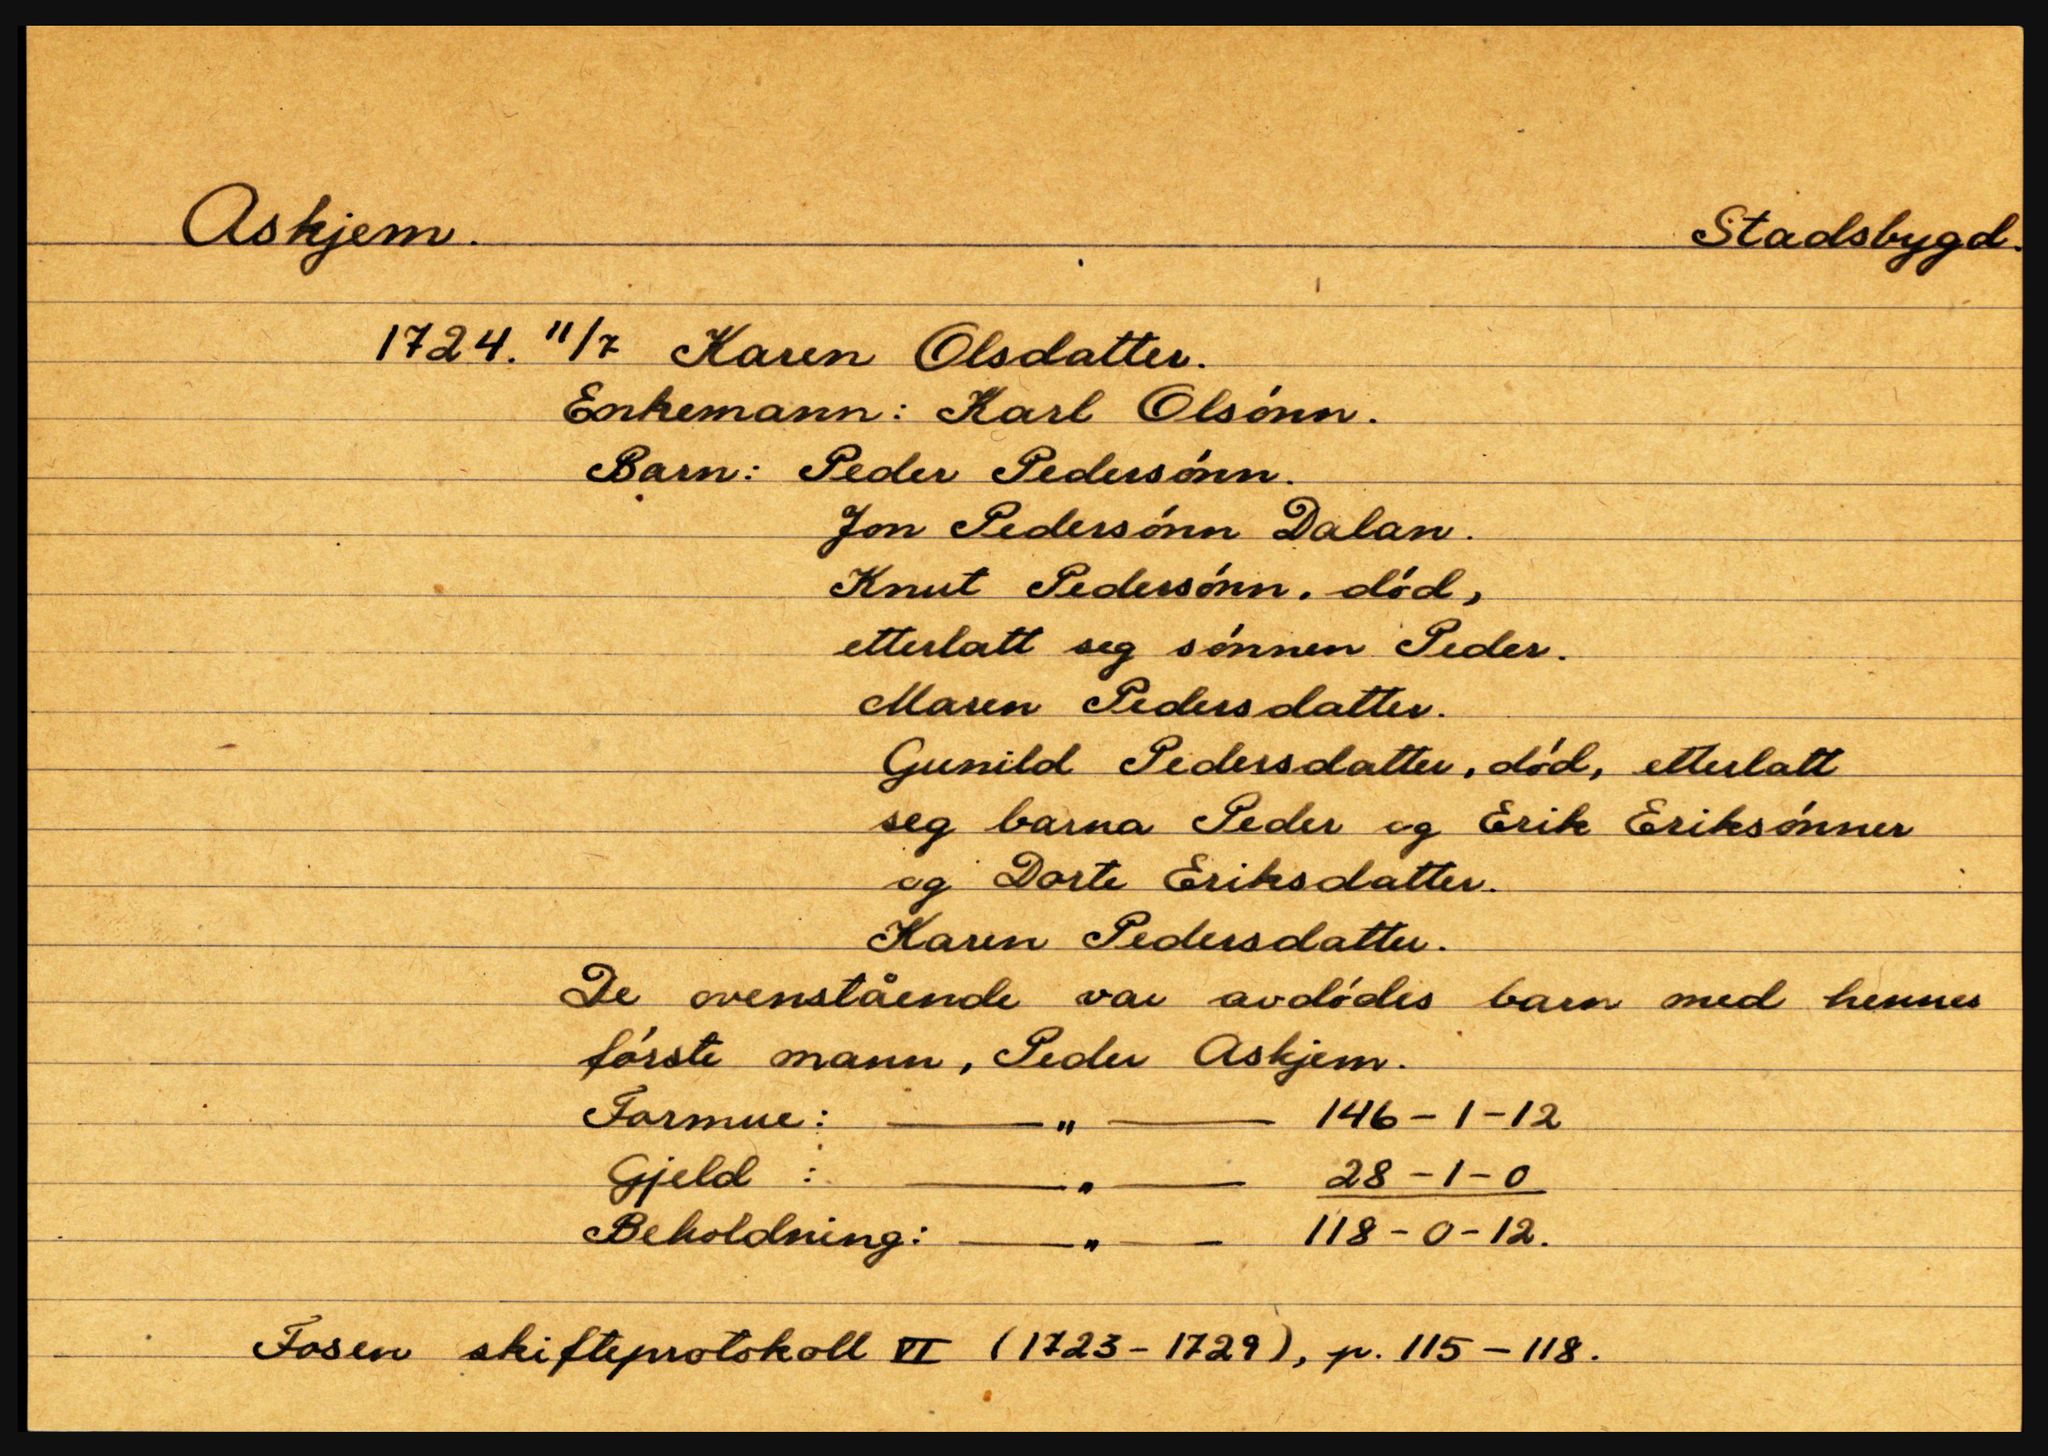 Askjem. Stadsbygd.
1724. 11/7 Karen Olsdatter.
Enkemann: Karl Olsónn.
Barn: Peder Pedersónn.
Jon Pedersónn Dalan.
Knut Pedersónn, dód,
etterlatt seg sónnen Peder.
Maren Pedersdatter.
Gunild Pedersdatter, dód, etterlatt
seg barna Peder og Erik Eriksónner
og Dorte Eriksdatter.
Karen Pedersdatter.
De ovenstående var avdódes barn med hennes
fórste mann, Peder Askjem.
Formue: — " — 146-1-12
Gjeld : — " — 28-1-0
Beholdning: — " — 118-0-12.
Fosen skifteprotokoll VI (1723-1729), p. 115-118.